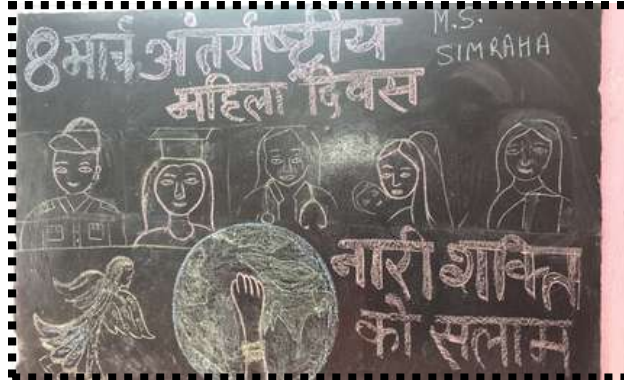 8 मार्च अंतर्राष्ट्रीय
महिला दिवस
M.S.
SIMRAHA
नारी शक्ति
को सलाम